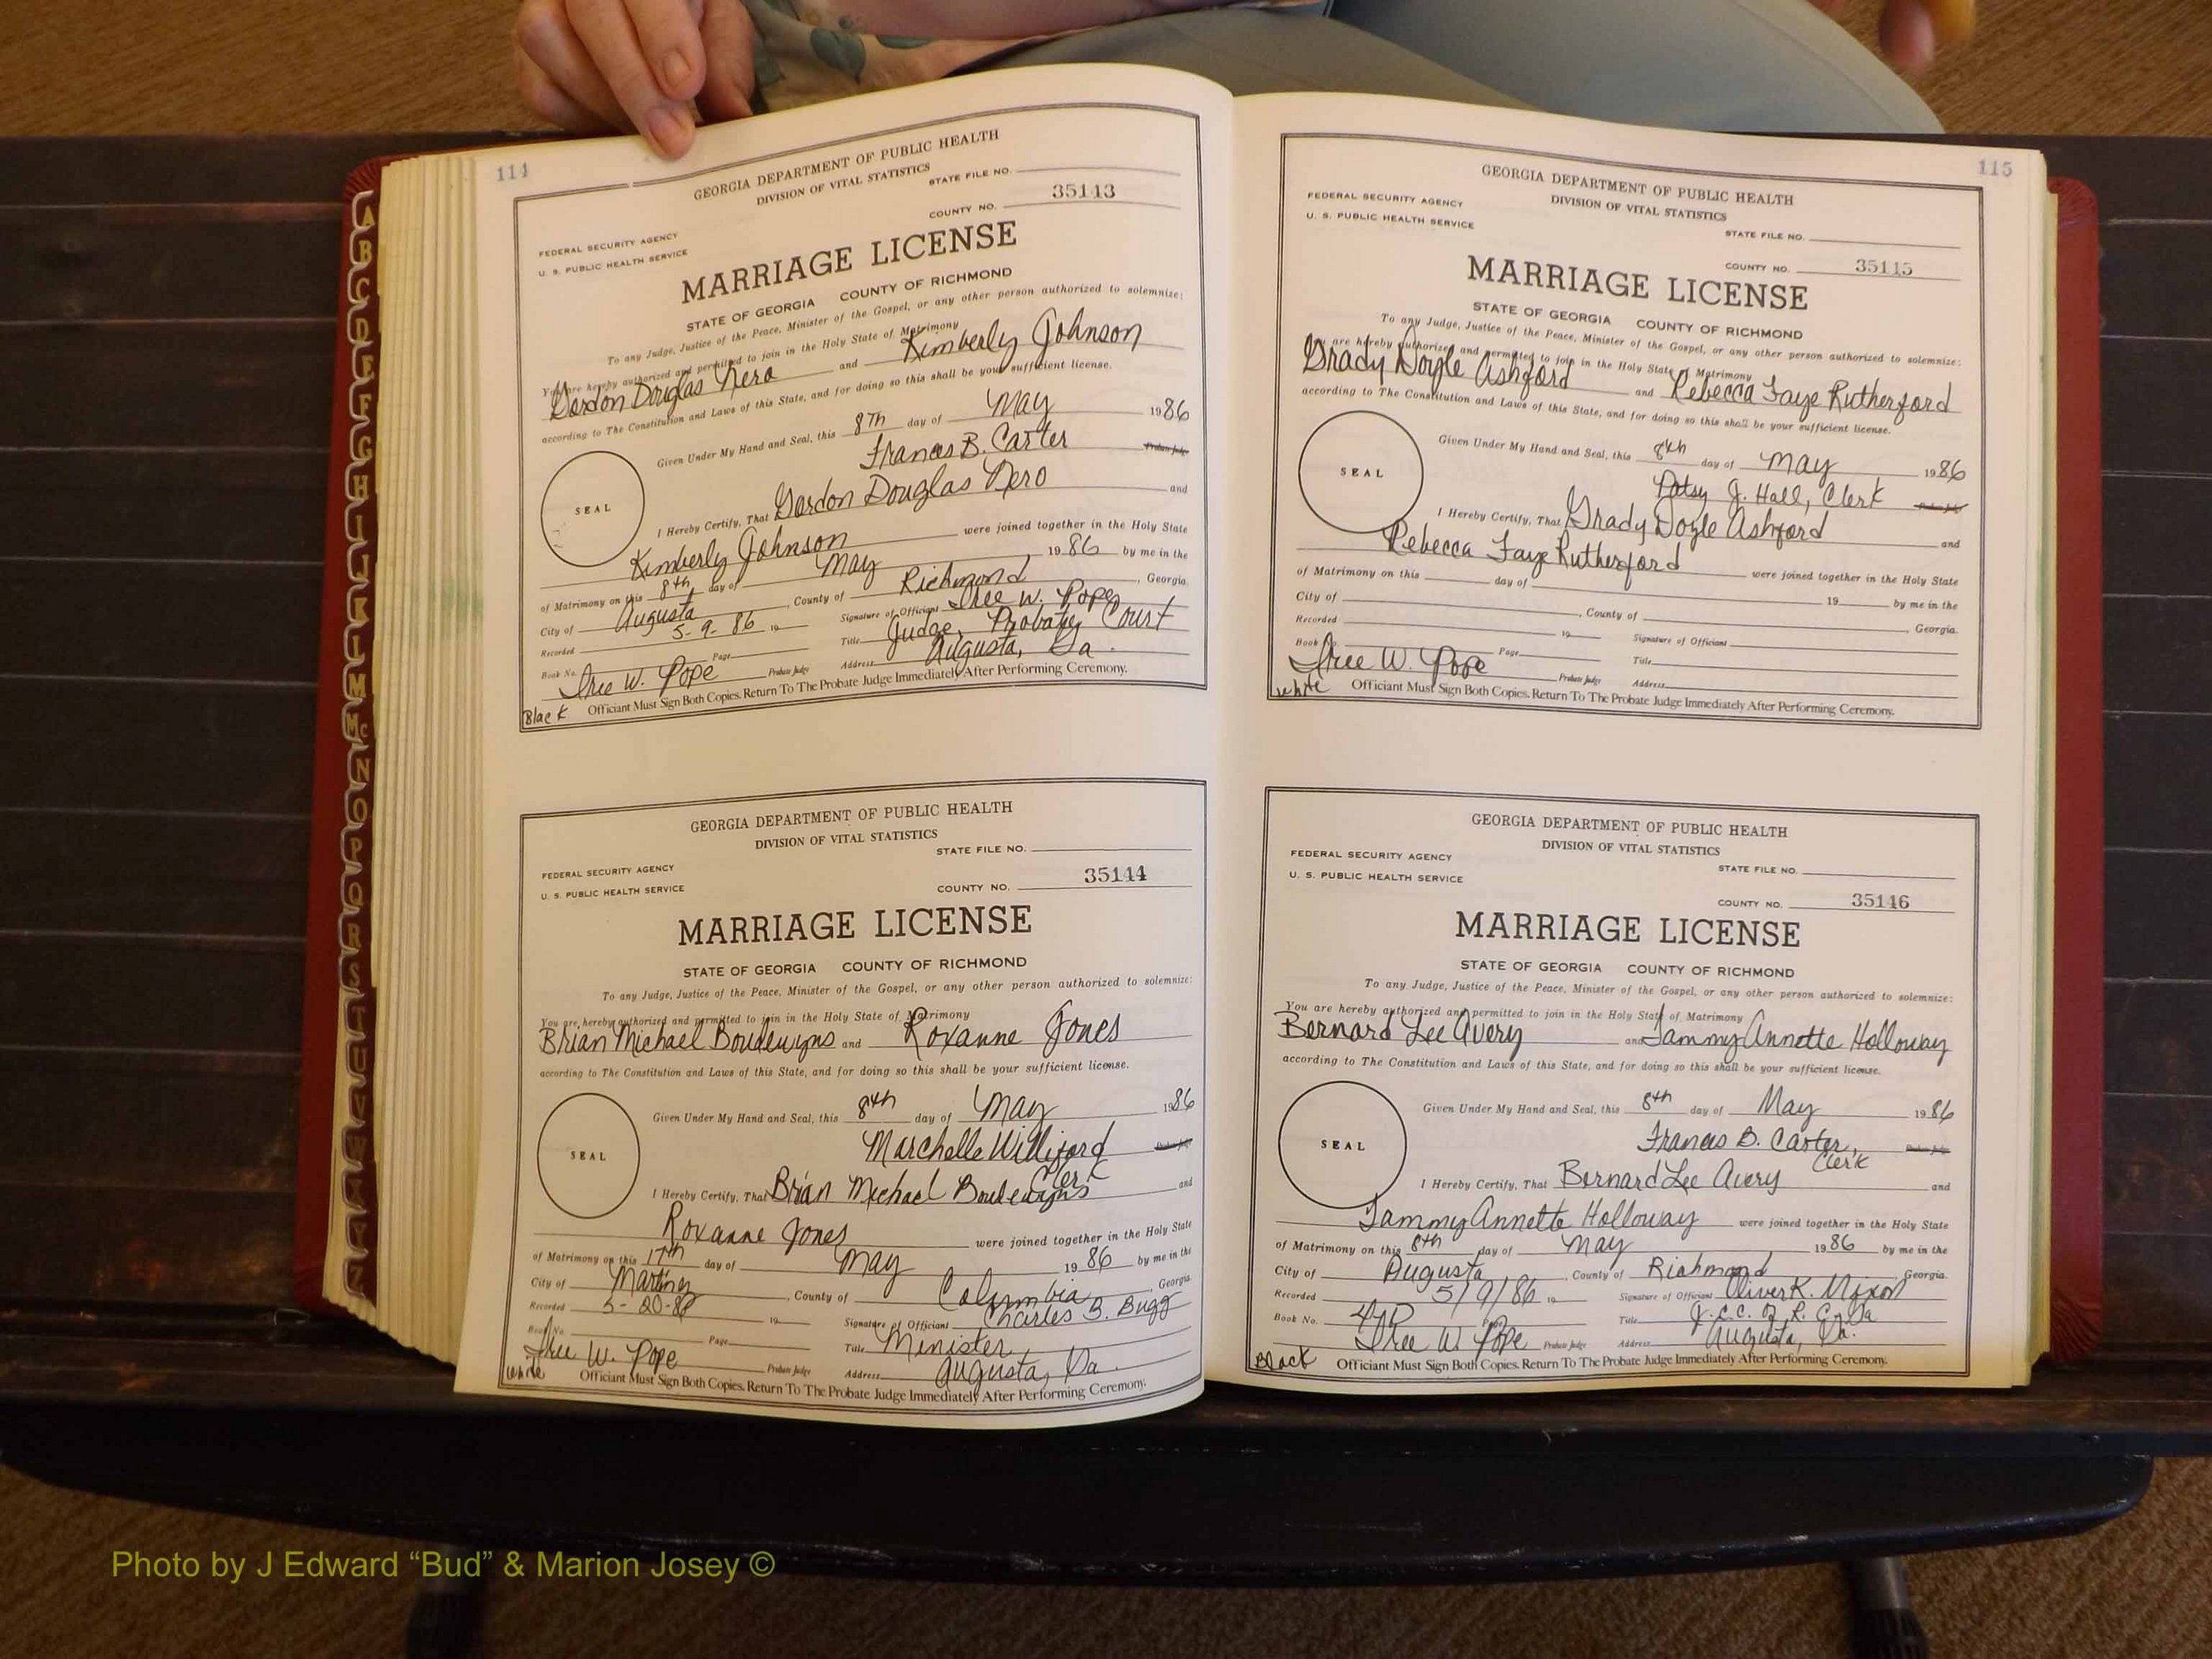 A
B
C
D
E
F
G
H
I
J
K
L
M
Mc
N
O
P
Q
R
S
T
U
V
W
X
Y
Z
114
GEORGIA DEPARTMENT OF PUBLIC HEALTH
DIVISION OF VITAL STATISTICS
STATE FILE NO.
COUNTY NO. 35143
FEDERAL SECURITY AGENCY
U. S. PUBLIC HEALTH SERVICE
MARRIAGE LICENSE
STATE OF GEORGIA COUNTY OF RICHMOND
To any Judge, Justice of the Peace, Minister of the Gospel, or any other person authorized to solemnize:
You are hereby authorized and permitted to join in the Holy State of Matrimony
Gordon Douglas Nero and Kimberly Johnson
according to The Constitution and Laws of this State, and for doing so this shall be your sufficient license.
Given Under My Hand and Seal, this 8Th day of May 1986
Frances B. Carter Probate Judge
SEAL
I Hereby Certify, That Gordon Douglas Nero and
Kimberly Johnson were joined together in the Holy State
of Matrimony on this 8th day of May 1986 by me in the
City of Augusta, County of Richmond, Georgia.
Recorded 5-9-86 19 Signature of Officiant Isee W. Pope
Book No. Page Title Judge, Probate Court
Isee W. Pope Probate Judge Address Augusta, Ga.
Black Officiant Must Sign Both Copies. Return To The Probate Judge Immediately After Performing Ceremony.
GEORGIA DEPARTMENT OF PUBLIC HEALTH
DIVISION OF VITAL STATISTICS
STATE FILE NO.
FEDERAL SECURITY AGENCY
U. S. PUBLIC HEALTH SERVICE
COUNTY NO. 35144
MARRIAGE LICENSE
STATE OF GEORGIA COUNTY OF RICHMOND
To any Judge, Justice of the Peace, Minister of the Gospel, or any other person authorized to solemnize:
You are hereby authorized and permitted to join in the Holy State of Matrimony
Brian Michael Boudewyns and Roxanne Jones
according to The Constitution and Laws of this State, and for doing so this shall be your sufficient license.
Given Under My Hand and Seal, this 8th day of May 1986
Marchelle Williford Probate Judge
Clerk
SEAL
I Hereby Certify, That Brian Michael Boudewyns and
Roxanne Jones were joined together in the Holy State
of Matrimony on this 17th day of May 1986 by me in the
City of Martinez, County of Columbia, Georgia.
Recorded 5-20-86 19 Signature of Officiant Charles B. Bugg
Book No. Page Title Minister
Isee W. Pope Probate Judge Address Augusta, Ga.
White Officiant Must Sign Both Copies. Return To The Probate Judge Immediately After Performing Ceremony.
115
GEORGIA DEPARTMENT OF PUBLIC HEALTH
DIVISION OF VITAL STATISTICS
FEDERAL SECURITY AGENCY
U. S. PUBLIC HEALTH SERVICE
STATE FILE NO.
COUNTY NO. 35145
MARRIAGE LICENSE
STATE OF GEORGIA COUNTY OF RICHMOND
To any Judge, Justice of the Peace, Minister of the Gospel, or any other person authorized to solemnize:
You are hereby authorized and permitted to join in the Holy State of Matrimony
Grady Doyle Ashford and Rebecca Faye Rutherford
according to The Constitution and Laws of this State, and for doing so this shall be your sufficient license.
Given Under My Hand and Seal, this 8th day of May 1986
Patsy J. Hall, Clerk Probate Judge
SEAL
I Hereby Certify, That Grady Doyle Ashford and
Rebecca Faye Rutherford were joined together in the Holy State
of Matrimony on this day of 19 by me in the
City of , County of Georgia.
Recorded 19 Signature of Officiant
Book No. Page Title
Isee W. Pope Probate Judge Address
White Officiant Must Sign Both Copies. Return To The Probate Judge Immediately After Performing Ceremony.
GEORGIA DEPARTMENT OF PUBLIC HEALTH
DIVISION OF VITAL STATISTICS
FEDERAL SECURITY AGENCY
U. S. PUBLIC HEALTH SERVICE
STATE FILE NO.
COUNTY NO. 35146
MARRIAGE LICENSE
STATE OF GEORGIA COUNTY OF RICHMOND
To any Judge, Justice of the Peace, Minister of the Gospel, or any other person authorized to solemnize:
You are hereby authorized and permitted to join in the Holy State of Matrimony
Bernard Lee Avery and Tammy Annette Holloway
according to The Constitution and Laws of this State, and for doing so this shall be your sufficient license.
Given Under My Hand and Seal, this 8th day of May 1986
Frances B. Carter, Probate Judge
Clerk
SEAL
I Hereby Certify, That Bernard Lee Avery and
Tammy Annette Holloway were joined together in the Holy State
of Matrimony on this 8th day of May 1986 by me in the
City of Augusta, County of Richmond, Georgia.
Recorded 5/9/86 19 Signature of Officiant Oliver K. Mixon
Book No. Page Title J.C.C. of R. C. Ga
Isee W. Pope Probate Judge Address Augusta, Ga.
Black Officiant Must Sign Both Copies. Return To The Probate Judge Immediately After Performing Ceremony.
Photo by J Edward “Bud” & Marion Josey ©